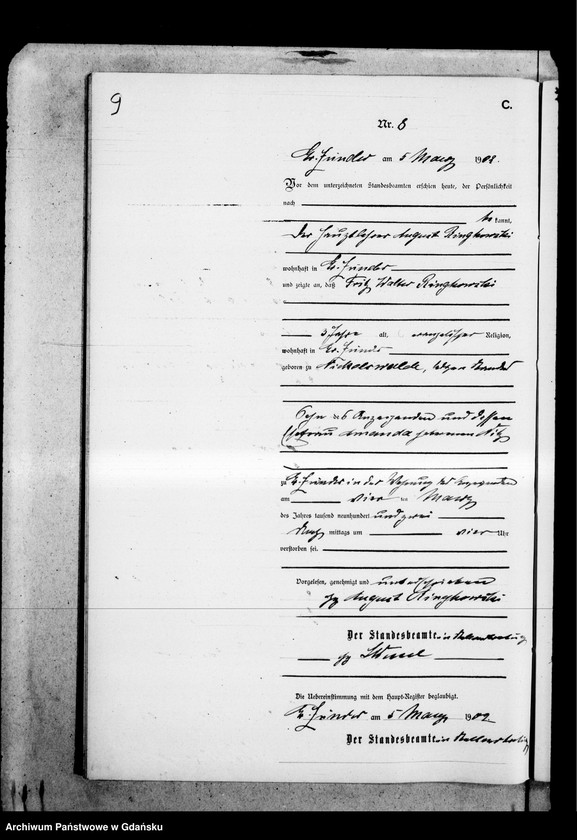 9
C.
Nr. 8
Gr. Zünder am 5 Maerz 1902.
Vor dem unterzeichneten Standesbeamten erschien heute, der Persönlichkeit
nach
kannt,
der Hauptlehrer August Ringkowski
wohnhaft in Gr. Zünder
und zeigte an, daß Fritz Walter Ringkowski
3 Jahre alt, evangelischer Religion,
wohnhaft in Gr. Zünder
geboren zu Nickelswalde, ledigen Standes
Sohn des Anzeigenden und dessen
Ehefrau Amanda geborenen
zu Gr. Zünder in der Wohnung des Anzeigenden
am vier ten Maerz
des Jahres tausend neunhundert und zwei
Nach mittags um vier Uhr
verstorben sei.
Vorgelesen, genehmigt und unterschrieben
gz August Ringkowski
Der Standesbeamte in Vertretung
gz
Die Uebereinstimmung mit dem Haupt-Register beglaubigt.
Gr. Zünder am 5 Maerz 1902
Der Standesbeamte in Vertretung
Archiwum Państwowe w Gdańsku